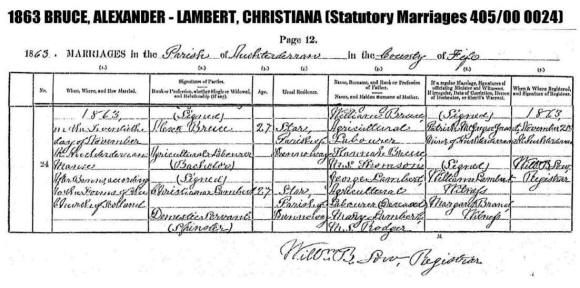 1863 BRUCE, ALEXANDER - LAMBERT, CHRISTIANA (Statutory Marriages 405/00 0024)
Page 12.
1863. MARRIAGES in the Parish of Auchterderran in the County of Fife
(1.) (2.) (3.) (4.) (5.) (6.) (7.)
No. When, Where, and How Married. Signatures of Parties. Rank or Profession, whether Single or Widowed, and Relationship (if any). Age. Usual Residence. Name, Surname, and Rank or Profession of Father. Name, and Maiden Surname of Mother. If a regular Marriage, Signatures of officiating Minister and Witnesses. If irregular, Date of Conviction, Decree of Declarator, or Sheriff's Warrant. When & Where Registered, and Signature of Registrar.
24
1863,
on the Twentieth
day of November
At Auchterderran
Manse
After Banns according
to the Forms of the
Church of Scotland
(Signed)
Alexr Bruce
Agricultural Labourer
(Bachelor)
(Signed)
Christiana Lambert
Domestic Servant
(Spinster)
27
27
Star,
Parish of
Kennoway
Star,
Parish of
Kennoway
William Bruce
Agricultural
Labourer
Hannah Bruce
M.S. Thomson
George Lambert,
Agricultural
Labourer (Deceased)
Mary Lambert
M.S. Rodger
(Signed)
Minr of Auchterderran
(Signed)
William Lambert
Witness
Margaret Brand
Witness
1863,
November 21st
At Auchterderran
Willm B. Dow,
Registrar
Willm B. Dow, Registrar